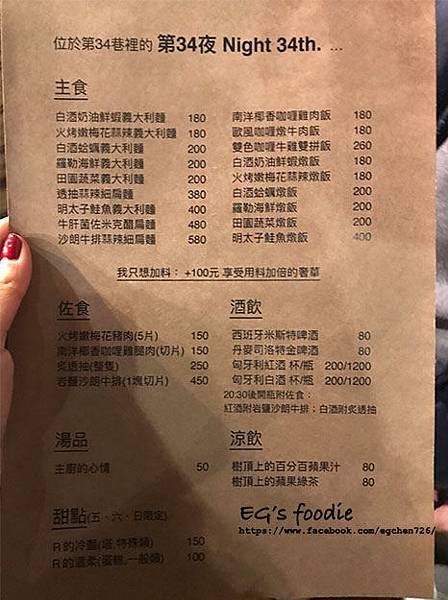 位於第34巷裡的 第34夜 Night 34th. ...
主食
白酒奶油鮮蝦義大利麵 180
火烤嫩梅花蒜辣義大利麵 180
白酒蛤蠣義大利麵 200
羅勒海鮮義大利麵 200
田園蔬菜義大利麵 200
透抽蒜辣細扁麵 380
明太子鮭魚義大利麵 400
牛肝菌佐米克醋扁麵 480
沙朗牛排蒜辣細扁麵 580
南洋椰香咖喱雞肉飯 180
歐風咖喱燉牛肉飯 180
雙色咖喱牛雞雙拼飯 260
白酒奶油鮮蝦燉飯 180
火烤嫩梅花蒜辣燉飯 180
白酒蛤蠣燉飯 200
羅勒海鮮燉飯 200
田園蔬菜燉飯 200
明太子鮭魚燉飯 400
我只想加料： +100元 享受用料加倍的奢華
佐食
火烤嫩梅花豬肉(5片) 150
南洋椰香咖喱雞腿肉(切片) 150
炙透抽(整隻) 250
岩鹽沙朗牛排(1塊切片) 450
酒飲
西班牙米斯特啤酒 80
丹麥司洛特金啤酒 80
匈牙利紅酒 杯/瓶 200/1200
匈牙利白酒 杯/瓶 200/1200
20:30後開瓶附佐食：
紅酒附岩鹽沙朗牛排；白酒附炙透抽
湯品
主廚的心情 50
涼飲
樹頂上的百分百蘋果汁 80
樹頂上的蘋果綠茶 80
甜點(五、六、日限定)
R的冷豔(塔,特殊類) 150
R的溫柔(蛋糕,一般類) 100
EG's foodie
https://www.facebook.com/egchen726/